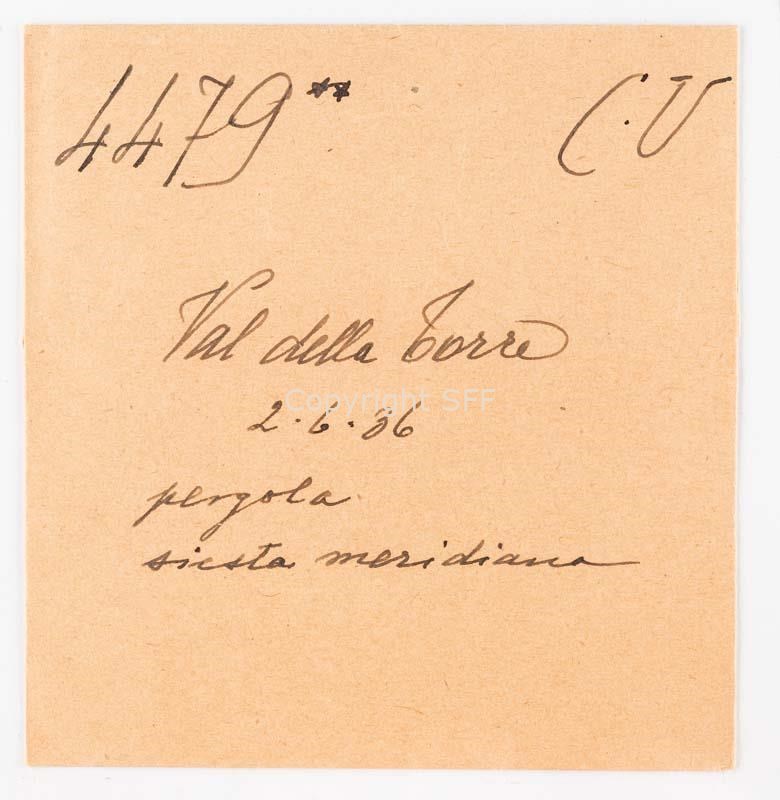 4479** C.V
Val della Torre
Copyright SFF
2.6.36
pergola
siesta meridiana